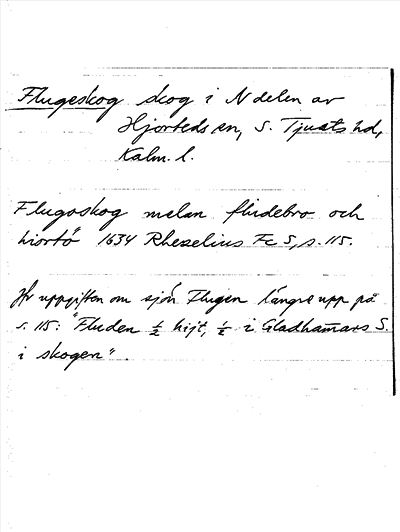 Flugeskog skog i N delen av
Hjorteds sn, S. Tjusts hd,
Kalm. l.
Flugoskog melan fludebro och
hiortö 1634 Rhezelius Fc 5, s. 115.
Jfr uppgiften om sjön Flugen längre upp på
s. 115: "Fluden ½ hijt, ½ i Gladhamars S.
i skogen".